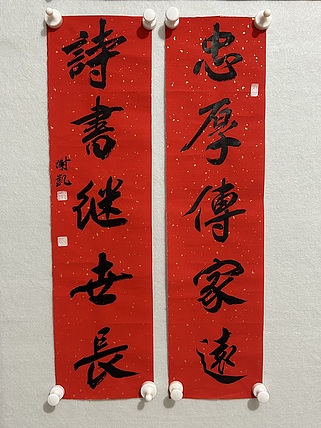 忠厚傳家遠
詩書继世長
謝凱